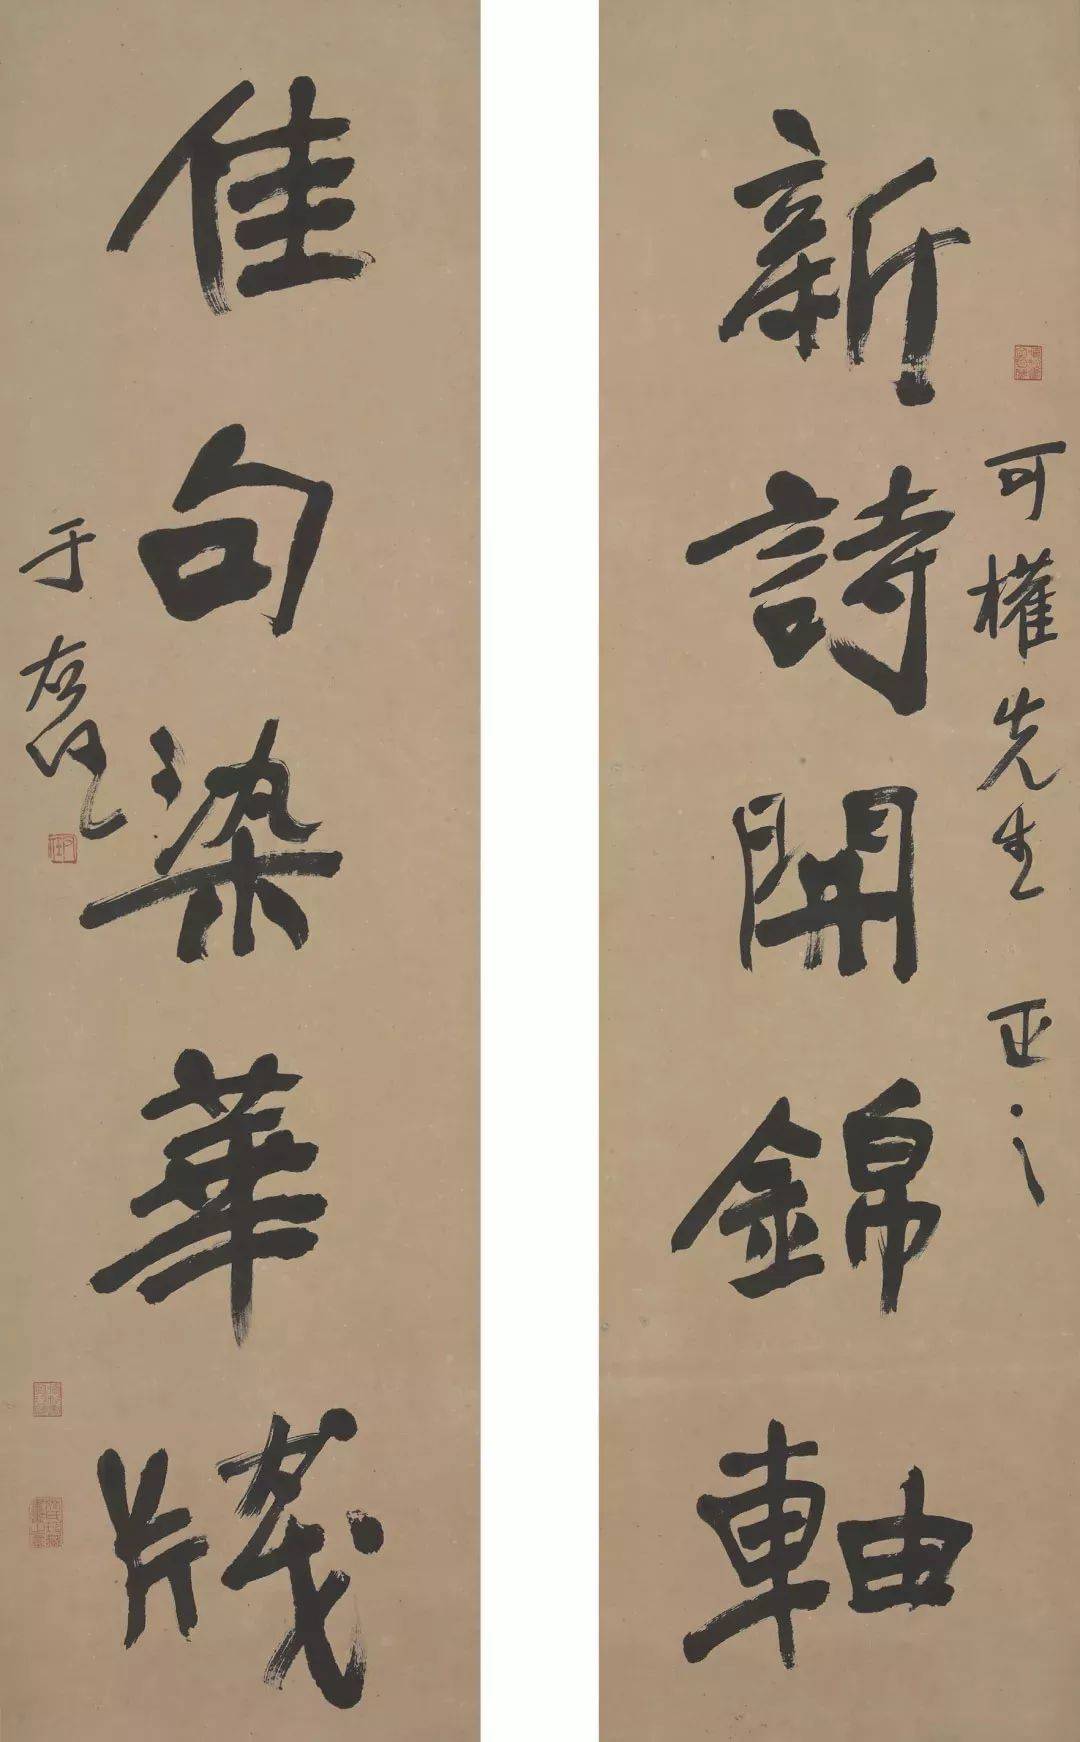 可權先生 正之
新詩開錦軸
佳句染華牋
于右任
右任